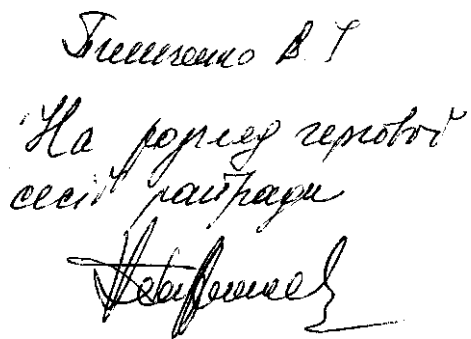 В. Г
На розгляд чергової
сесії райради